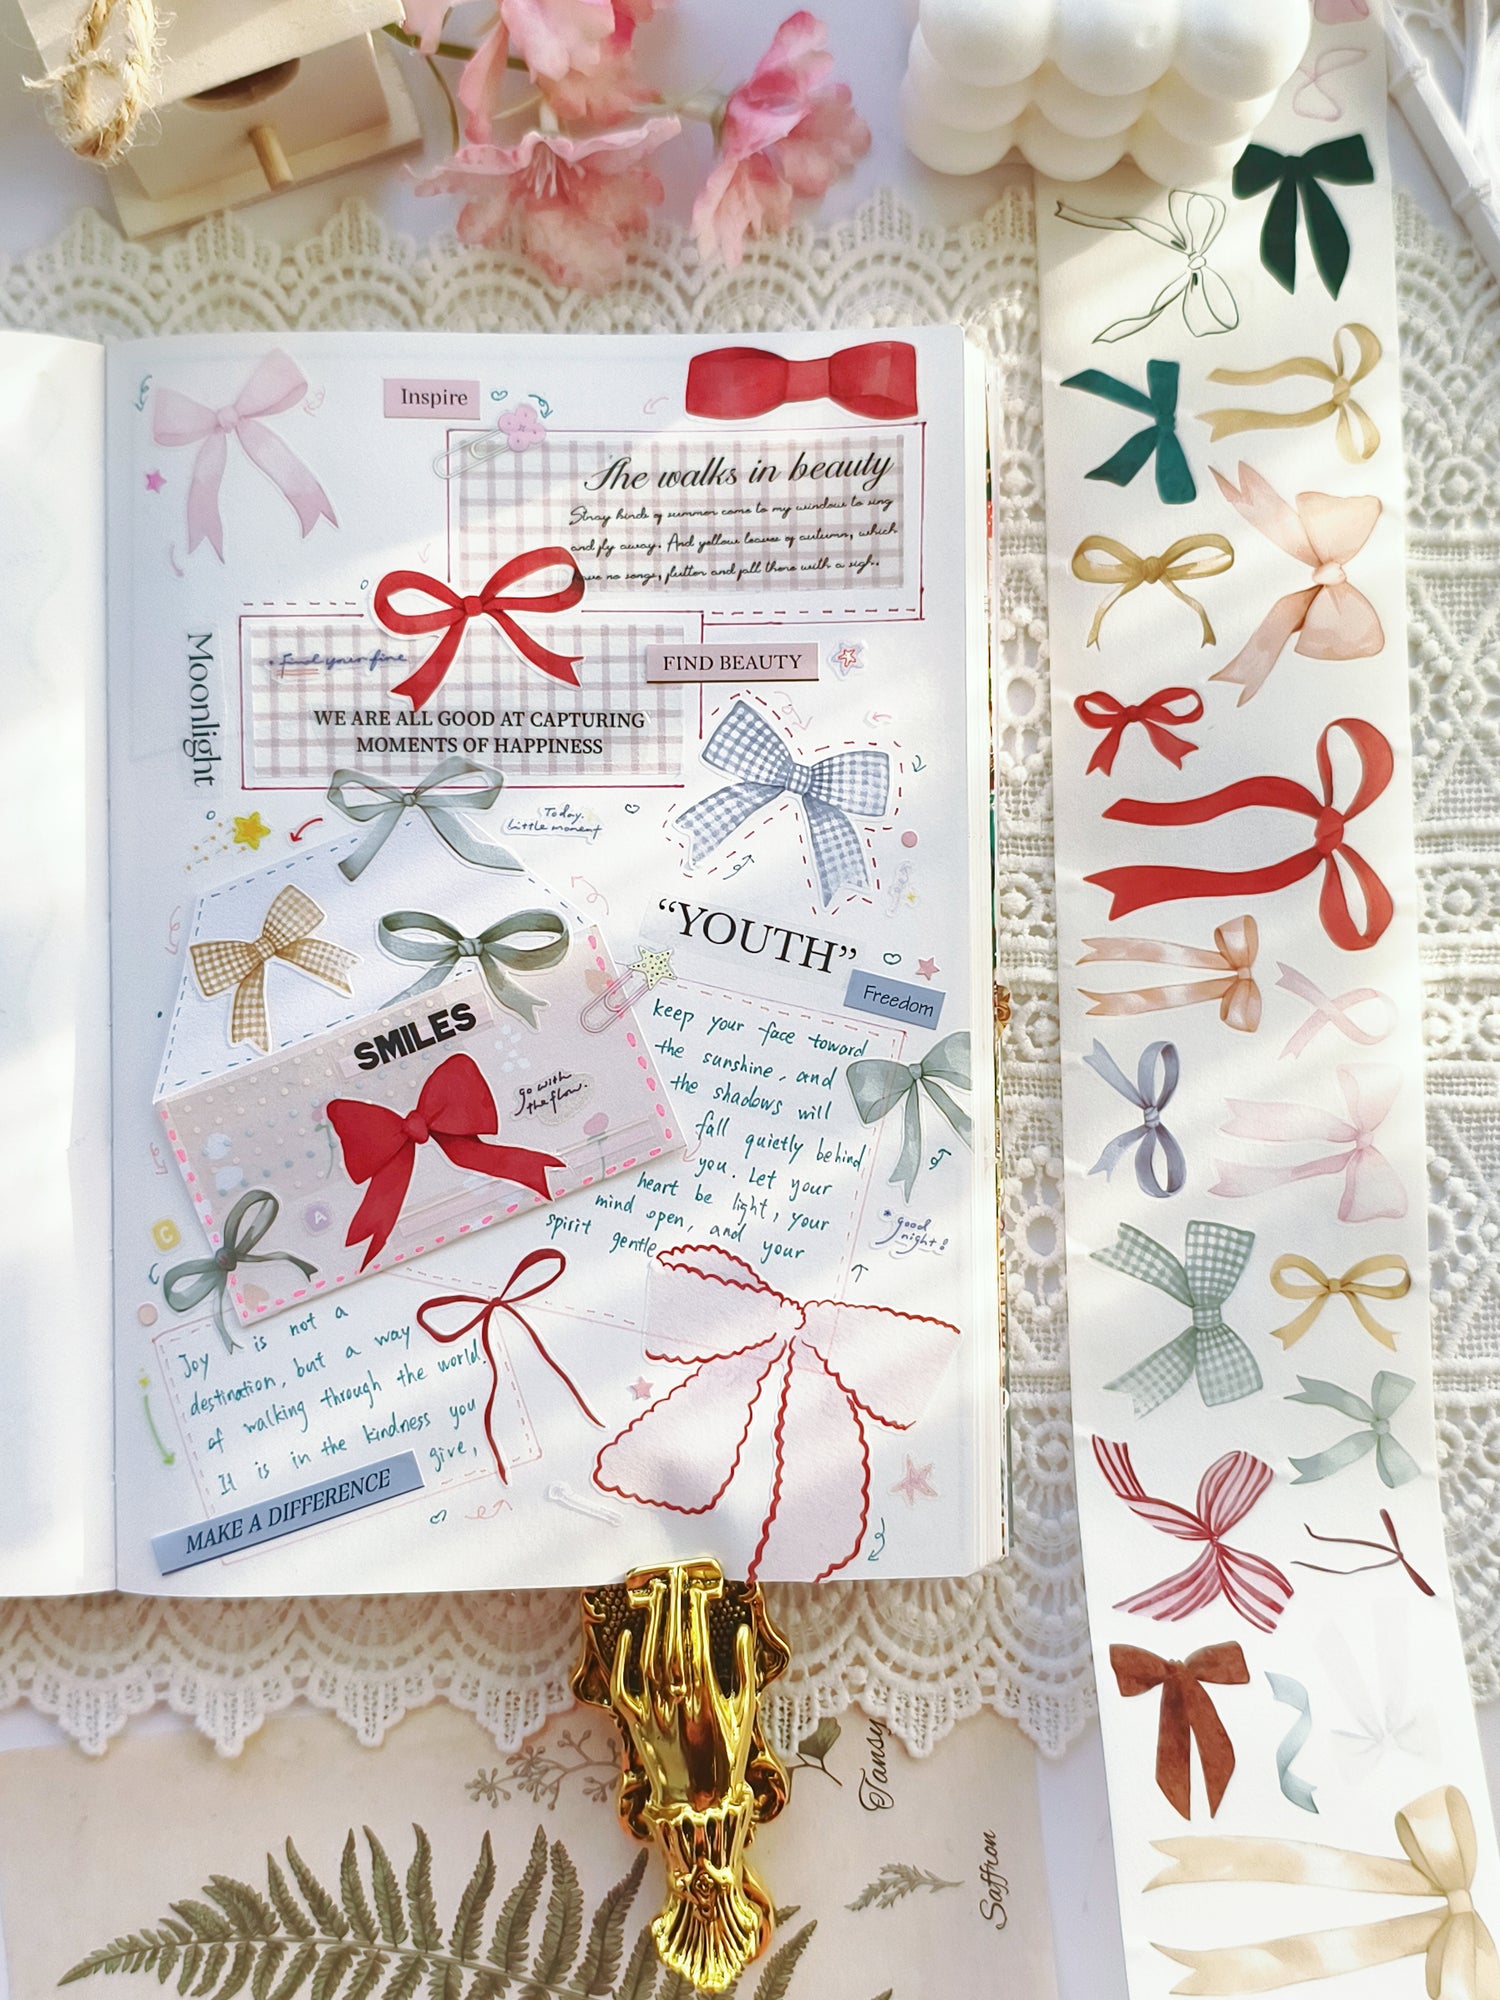 Inspire
She walks in beauty
Stray birds of summer come to my window to sing
and fly away. And yellow leaves of autumn, which
have no songs, flutter and fall there with a sigh.
Moonlight
Find your fine
FIND BEAUTY
WE ARE ALL GOOD AT CAPTURING
MOMENTS OF HAPPINESS
Today.
Little moment
"YOUTH"
Freedom
SMILES
go with
the flow.
keep your face toward
the sunshine, and
the shadows will
fall quietly behind
you. Let your
heart be light, your
mind open, and your
spirit gentle
* good
night!
C
A
Joy is not a
destination, but a way
of walking through the world.
It is in the kindness you
give,
MAKE A DIFFERENCE
Tansy
Saffron